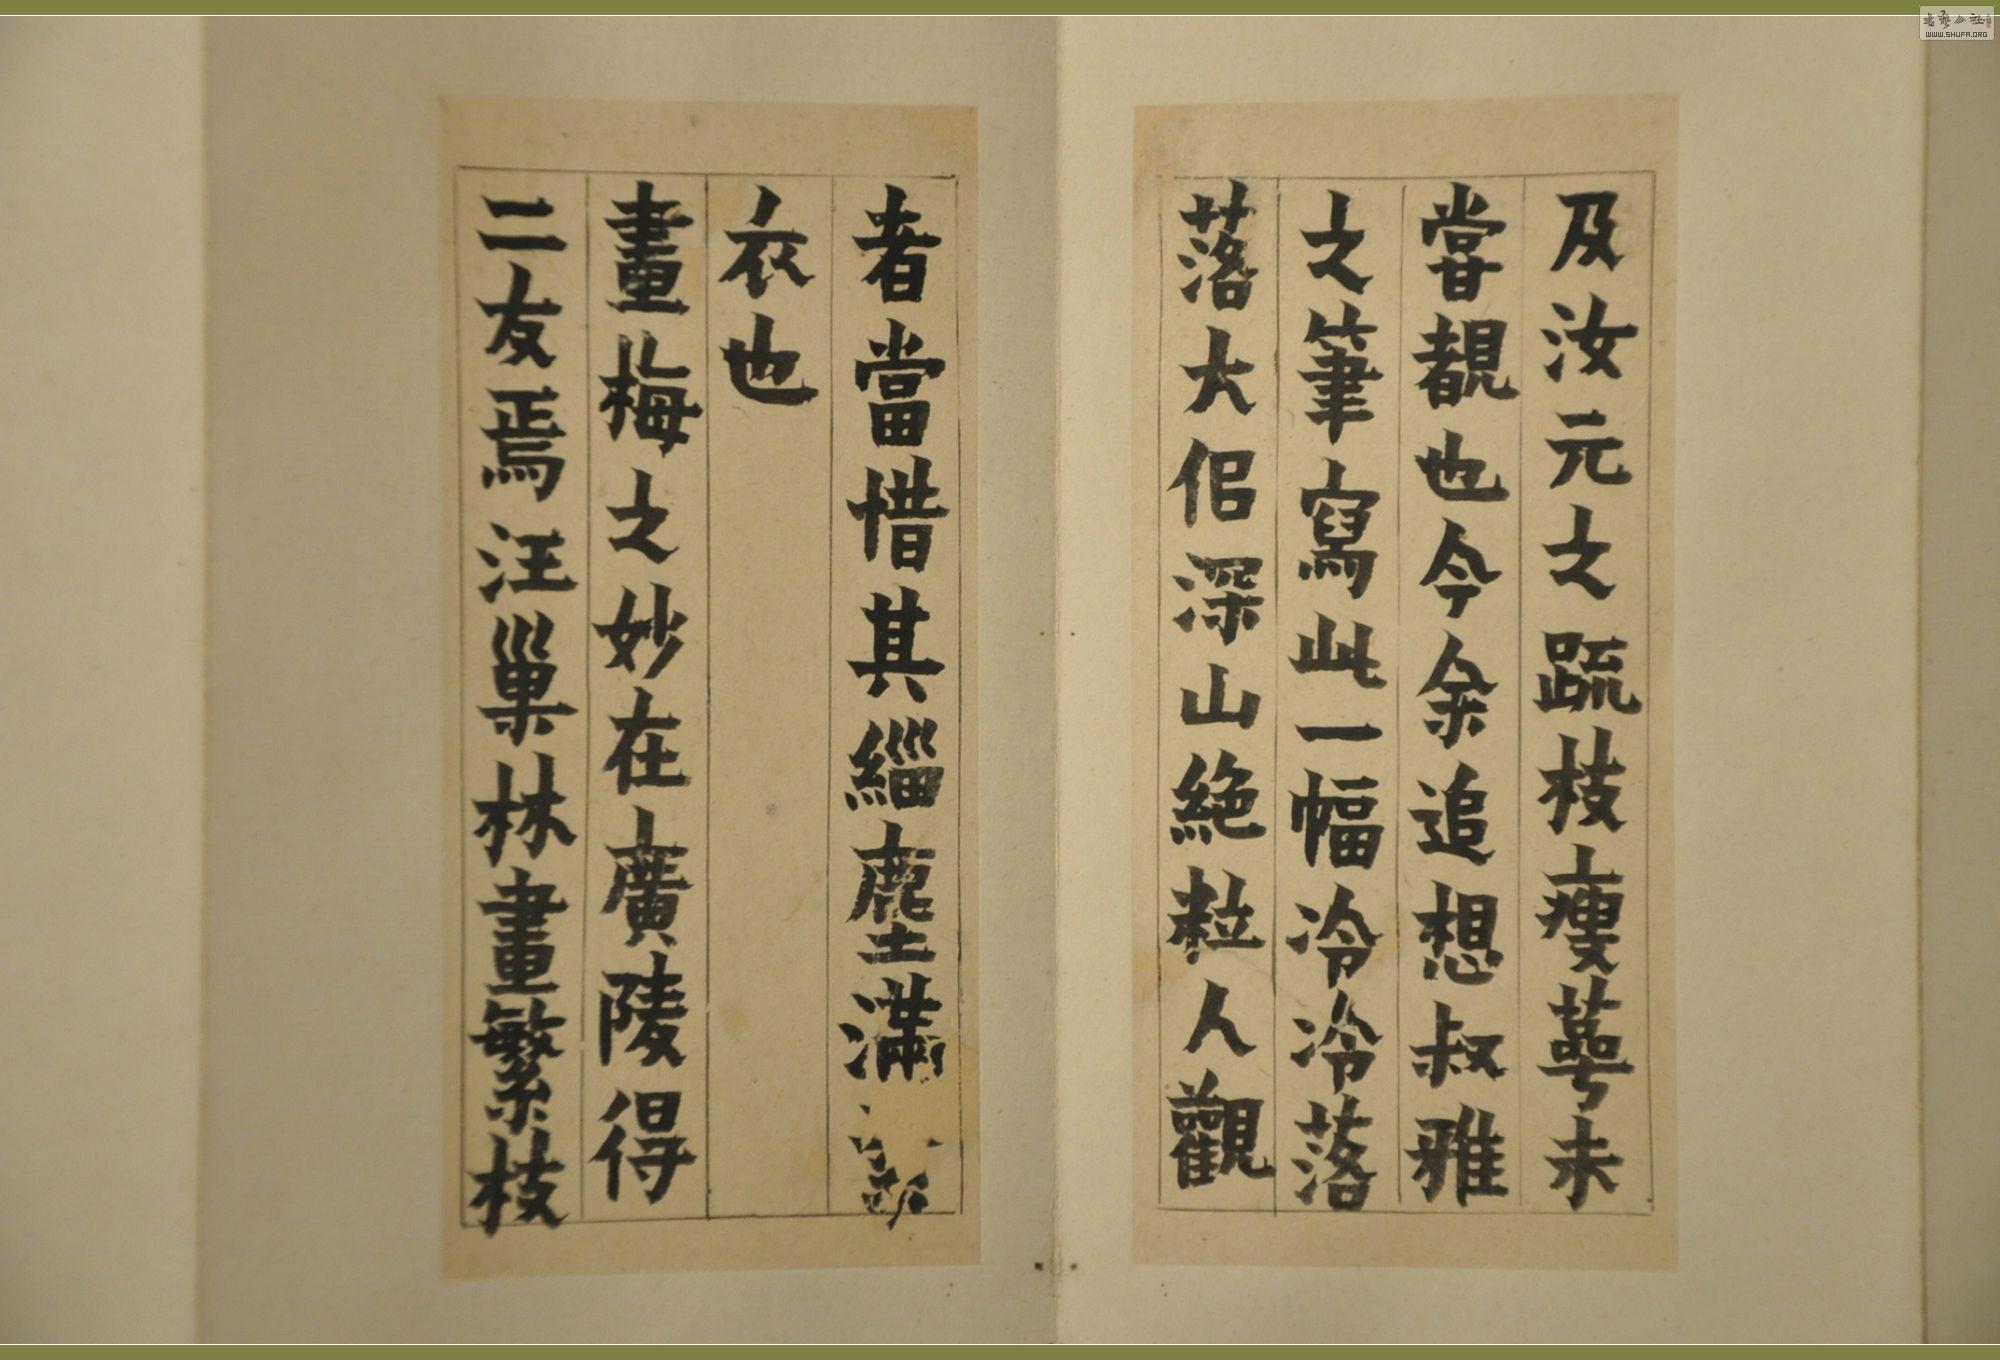 及汝元之疏枝瘦萼未
嘗覩也今余追想叔雅
之筆寫此一幅冷冷落
落大佀深山絶粒人觀
者當惜其緇塵滿
衣也
畫梅之妙在廣陵得
二友焉汪巢林畫繁枝
WWW.SHUFA.ORG